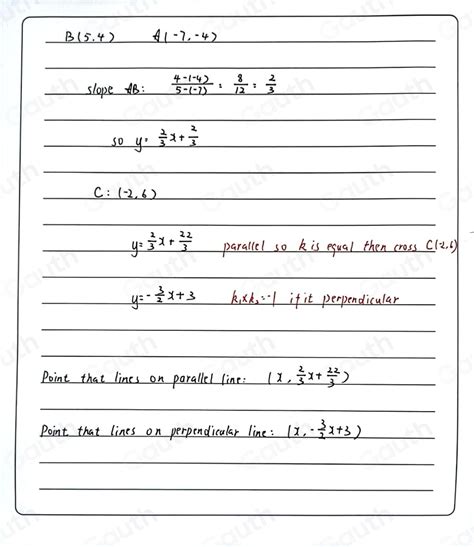 B(5,4) A(-7,-4)
slope AB: 4-(-4)/5-(-7) = 8/12 = 2/3
so y= 2/3 x + 2/3
C: (-2,6)
y= 2/3 x + 22/3 parallel so k is equal then cross C(-2,6)
y= - 3/2 x + 3 k₁xk₂=-1 if it perpendicular
Point that lines on parallel line: (x, 2/3 x + 22/3)
Point that lines on perpendicular line: (x, - 3/2 x + 3)